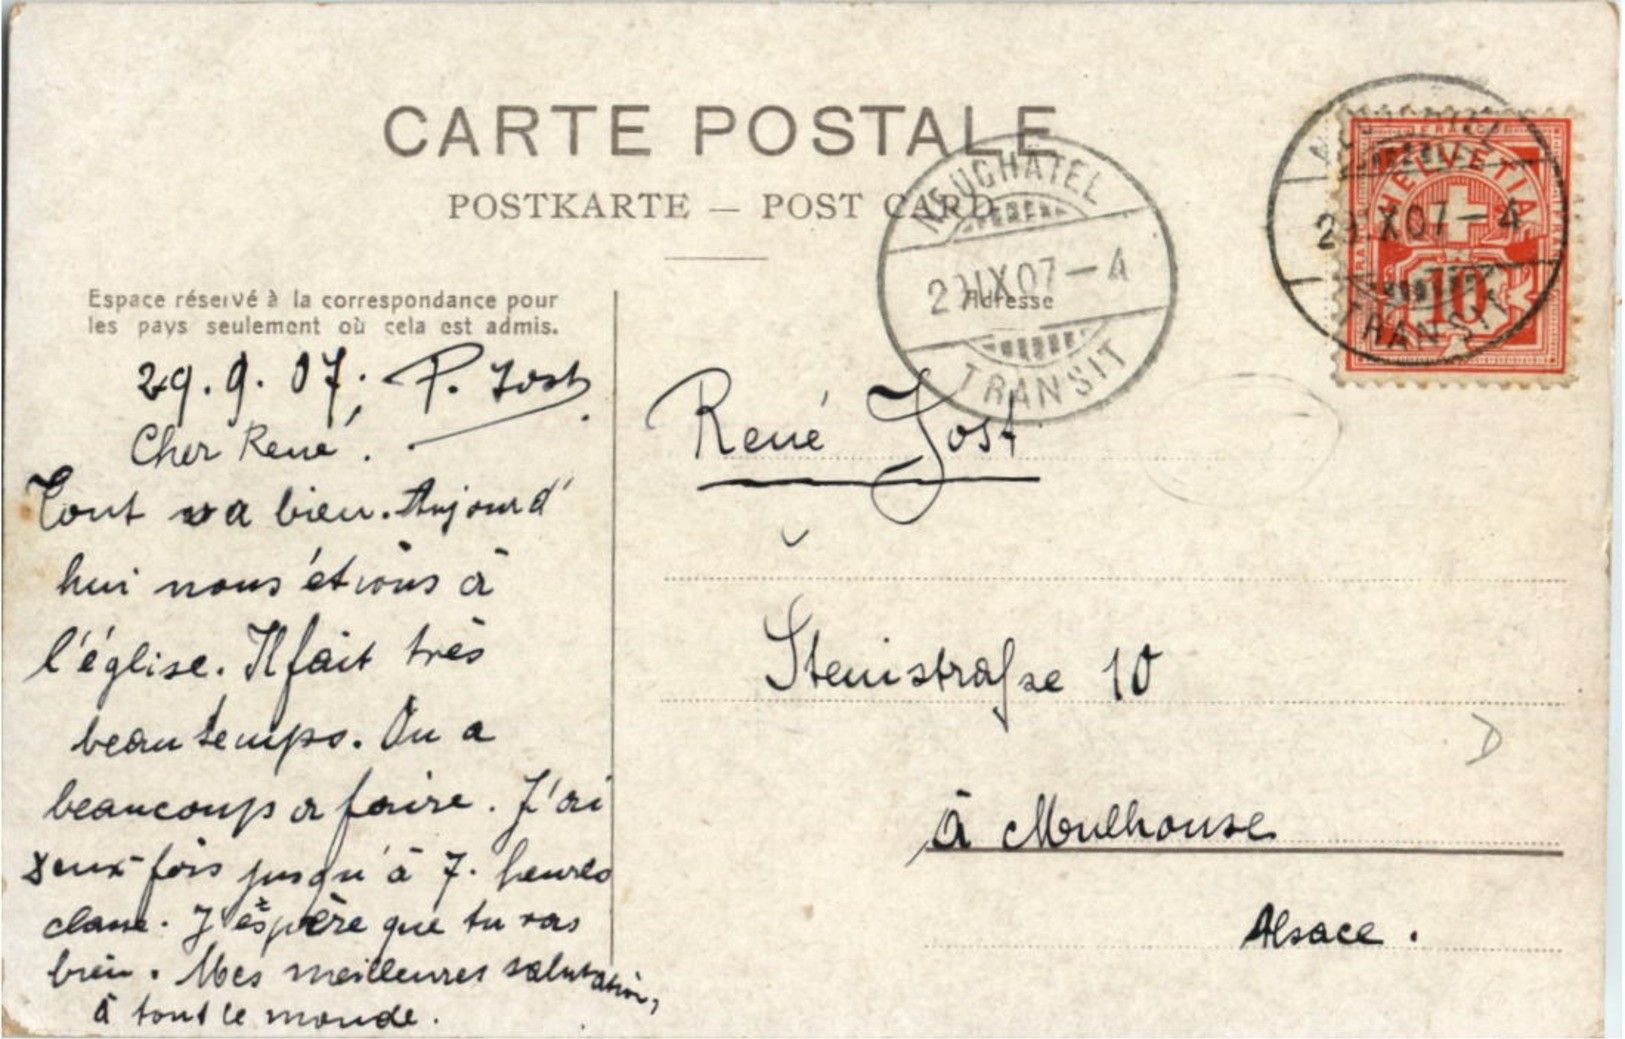 CARTE POSTALE
POSTKARTE — POST CARD
Espace réservé à la correspondance pour
les pays seulement où cela est admis.
Adresse
NEUCHATEL
29 IX 07 – 4
TRANSIT
NEUCHATEL
29 IX 07 – 4
TRANSIT
HELVETIA
10
29.9.07; P. Jost
Cher René.
Tout va bien. Aujourd'
hui nous étions à
l'église. Il fait très
beau temps. On a
beaucoup a faire. J'ai
deux fois jusqu'à 7. heures
classe. J'éspère que tu vas
bien. Mes meilleures salutation,
à tout le monde.
René Jost
Steinstraße 10
à Mulhouse
Alsace.